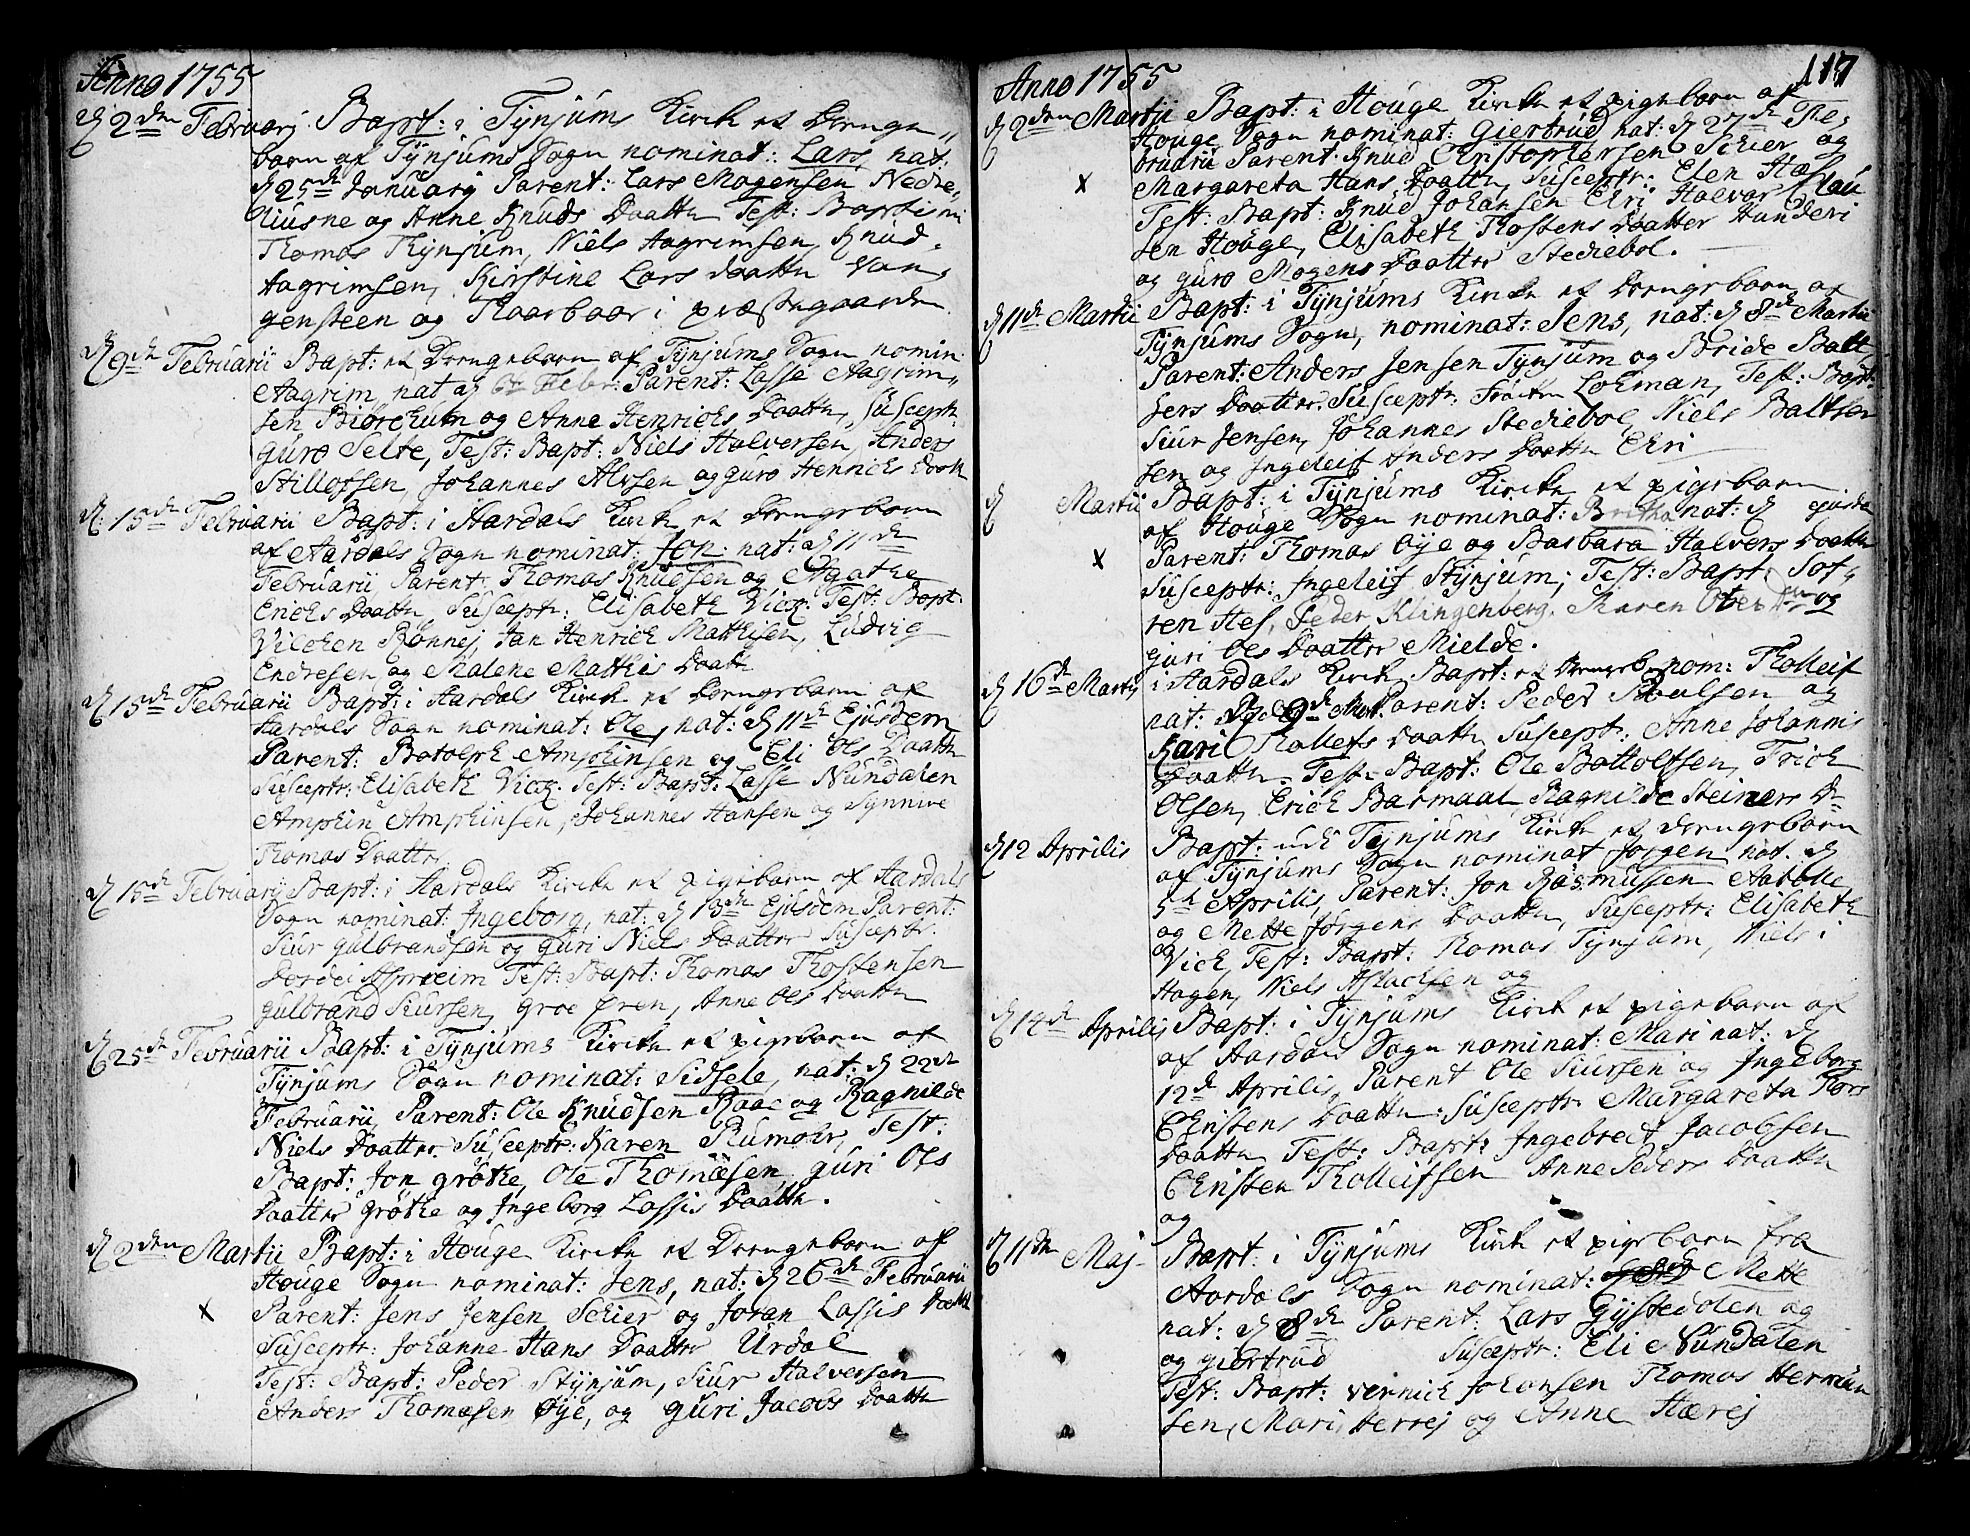 Anno 1755
d 2den Februarij Bapt: i Tynjums Kirch et Drenge
barn af Tynjums Sogn nominat: Lars, nat.
d 25de Januarij Parent: Lars Mogensen Nedre
Liusne og Anne Knuds Daatter Test: Baptismi
Thomas Thynjum, Niels Aagrimsen, Knud
Aagrimsen, Kirstine Lars daatter Van
gensteen og i præstegaarden
d 9de Februarii Bapt: et Drengebarn af Tynjums Sogn nomin
Aagrim, nat d 6te Febr: Parent: Lasse Aagrim
sen Biørckum og Anne Henrichs Daatter, Suscept:
Guro Selte, Test: Bapt: Niels Halversen, Anders
Stillofsen, Johannes Alvsen og Guro Henrichs Daatt
d: 15de Februarii Bapt: i Aardals Kirch et Drengebarn
af Aardals Sogn nominat: Jon nat: d 11de
Februarii Parent: Thomas Knudsen og Agathe
Erichs Daatter, Susceptr: Elisabeth Vick. Test: Bapt:
Vilchen Rønnej, Jan Henrich Mathisen, Ludvig
Endresen og Malene Mathis Daatt
d 15de Februarii Bapt: i Aardals Kirch et Drengebarn af
Aardals Sogn nominat: Ole, nat: d 11de Ejusdem
Parent: Botolph Amphinsen og Eli Ols Daatter
Susceptr: Elisabeth Vick. Test: Bapt: Lasse Nundalen
Amphin Amphinsen, Johannes Hansen og Synnive
Thomas Daatter
d 15de Februarij Bapt: i Aardals Kirche et pigebarn af Aardals
Sogn nominat: Ingeborg, nat: d 13de Ejusdem Parent:
Siur Gulbrandsen og Guri Niels Daatter Susceptr:
Dordei Test: Bapt: Thomas Thostensen
Gulbrand Siursen, Groe Øren, Anne Ols Daatter
d 25de Februarii Bapt: i Tynjums Kirche et pigebarn af
Tynjums Sogn nominat: Sidsele, nat: d 22de
Februarii, Parent: Ole Knudsen Raae og Ragnilde
Niels Daatter. Susceptr: Karen Rumohr, Test:
Bapt: Jon Grøthe, Ole Thomæsen, Guri Ols
Daatter Grøthe og Ingeborg Lassis Daatter.
d 2den Martii Bapt: i Houge Kirche et Drengebarn af
Houge Sogn nominat: Jens, nat: d 26de Februarii
x Parent: Jens Jensen Schier og Joran Lassis Daatter
Susceptr: Johanne Hans Daatter Urdal
Test: Bapt: Peder Stynjum, Siur Halversen
Anders Thomæsen Øye, og Guri Jacobs Daatter
Anno 1755 117
d 2den Martii Bapt: i Houge Kirche et pigebarn af
Houge Sogn nominat: Giertrud nat: d 27de Fe
bruarii Parent: Knud Christophersen Schier og
x Margareta Hans Daatter, Susceptr: Elen Has
Test: Bapt: Knud Johansen Eri Halvor
sen Houge, Elisabeth Thostens Daatter Hunderi
og Guro Mogens Daatter Stediebol.
d 11de Martii Bapt: i Tynjums Kirche et Drengebarn af
Tynjums Sogn, nominat: Jens, nat: d 8de Martii
Parent: Anders Jensen Tynjum og Bride Balt
sers Daatter. Susceptr: Lohman, Test: Bapt:
Siur Jensen, Johannes Stediebol, Niels Baltser
sen og Ingeleif Anders Daatter Eri
d Martii Bapt: i Tynjums Kirche et pigebarn
af Houge Sogn nominat: Britha nat: d ejusdem
x Parent: Thomas Øye og Barbara Halvers Daatter
Susceptr: Ingeleif Stynjum, Test: Bapt: Sof
ren Hes, Peder Klingenberg. Karen og
Guri Ols Daatter Mielde.
d 16de Martij i Aardals Kirch Bapt: et Drengebn nom: Tholleif
nat: d 9de Mart: Parent: Peder Poulsen og
Kari Thollefs Daatter Suscept: Anne Johannis
Daatter. Test: Bapt: Ole Bottolfsen, Erich
Olsen, Erich Ragnilde Steiners D
d 12 Aprilis Bapt: udi Tynjums Kirche et Drengebarn
af Tynjums Sogn nominat Jørgen nat. d
5de Aprilis, Parent: Jon Rasmussen Aabølle
og Mette Jørgens Daatter, Susceptr: Elisabeth
Vick, Test: Bapt: Thomas Tynjum, Niels i
Hagen, Niels Aslachsen og
d 14de Aprilis Bapt: i Tynjums Kirch et pigebarn af
af Aardals Sogn nominat: Mari nat: d
12de Aprilis, Parent Ole Siursen og Ingeborg
Christens Daatter: Susceptr: Margareta Thors
Daatter Test: Bapt: Ingebrect Jacobsen
Christen Tholleifsen Anne Peders Daatter
og
d 11de Maj Bapt: i Tynjums Kirch et pigebarn fra
Aardals Sogn nominat: Mette
nat: d 8de Parent: Lars Gystedolen og
og Giertrud Susceptr: Eli Nundalen
Test: Bapt: Vernich Johansen Thomas Herman
sen, Mari Herrej og Anne Hærej